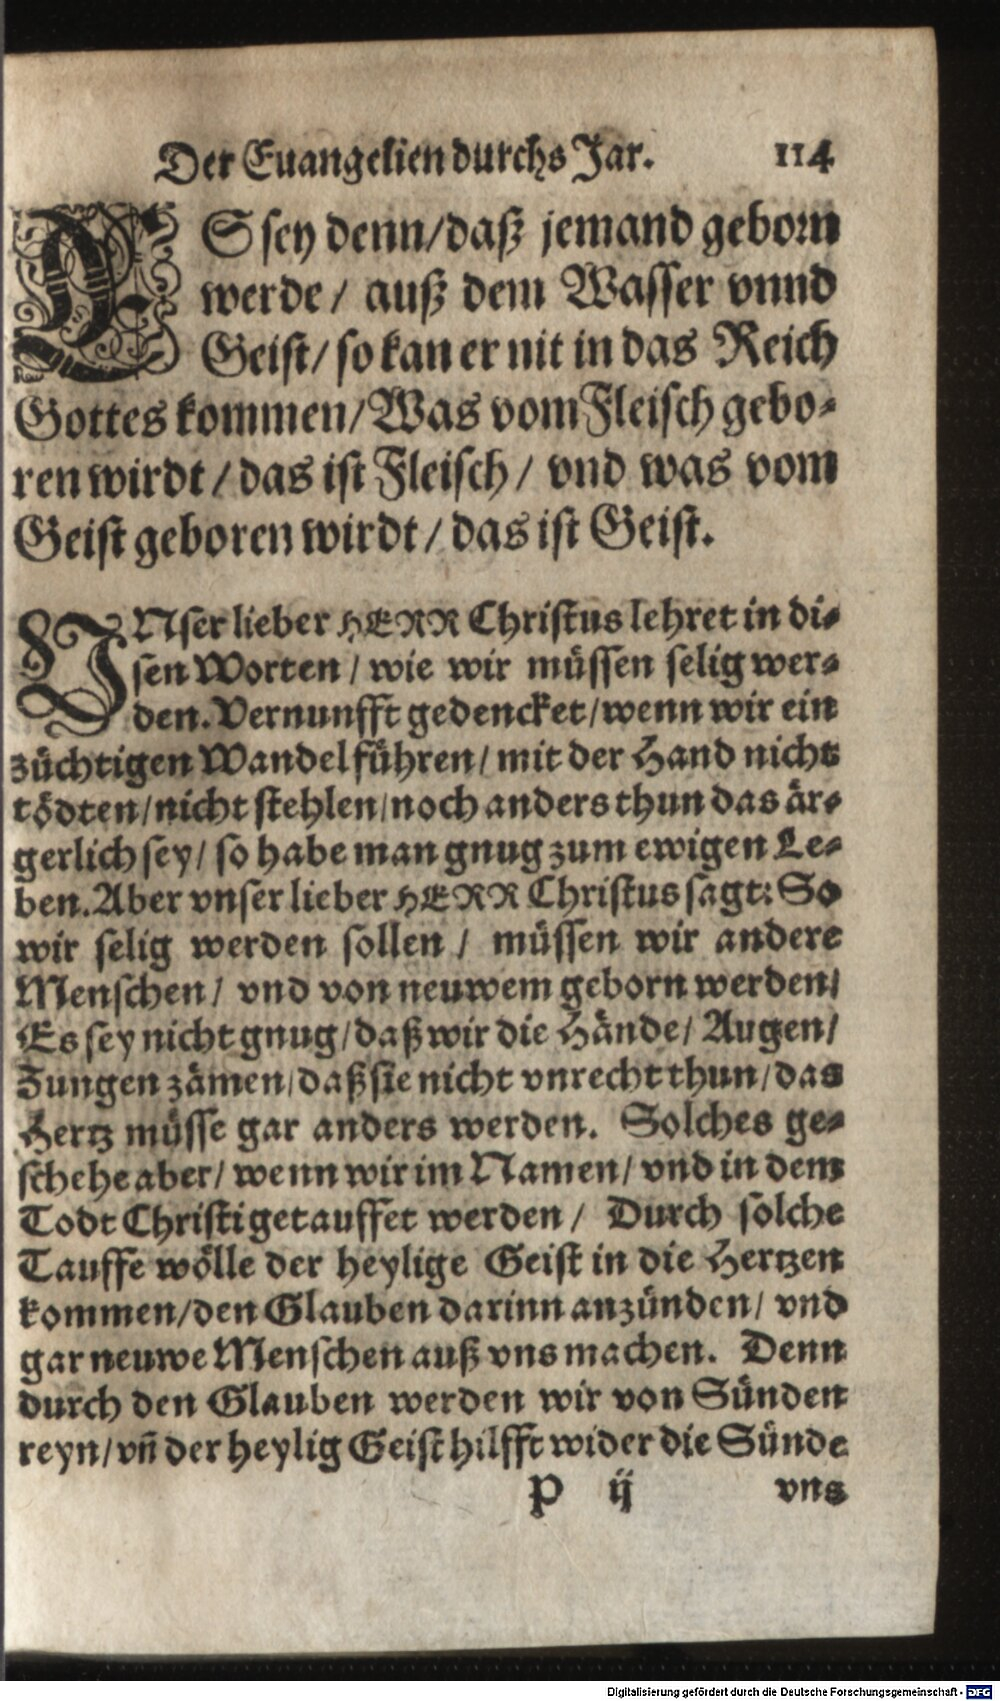 Der Euangelien durchs Jar. 114
ES sey denn/daß jemand geborn
werde/ auß dem Wasser vnnd
Geist/ so kan er nit in das Reich
Gottes kommen/Was vom Fleisch gebo-
ren wirdt/das ist Fleisch/ vnd was vom
Geist geboren wirdt/das ist Geist.
VNser lieber HERR Christus lehret in di-
sen Worten/ wie wir müssen selig wer-
den. Vernunfft gedencket/wenn wir ein
züchtigen Wandel führen/ mit der Hand nicht
tödten/nicht stehlen/noch anders thun das är-
gerlich sey/ so habe man gnug zum ewigen Le-
ben. Aber vnser lieber HERR Christus sagt: So
wir selig werden sollen/ müssen wir andere
Menschen/ vnd von neuwem geborn werden/
Es sey nicht gnug/daß wir die Hände/ Augen/
Zungen zämen/daß sie nicht vnrecht thun/das
Hertz müsse gar anders werden. Solches ge-
schehe aber/ wenn wir im Namen/ vnd in dem
Todt Christi getauffet werden/ Durch solche
Tauffe wölle der heylige Geist in die Hertzen
kommen/den Glauben darinn anzünden/ vnd
gar neuwe Menschen auß vns machen. Denn
durch den Glauben werden wir von Sünden
reyn/vñ der heylig Geist hilfft wider die Sünde
P ij vns
Digitalisierung gefördert durch die Deutsche Forschungsgemeinschaft - DFG